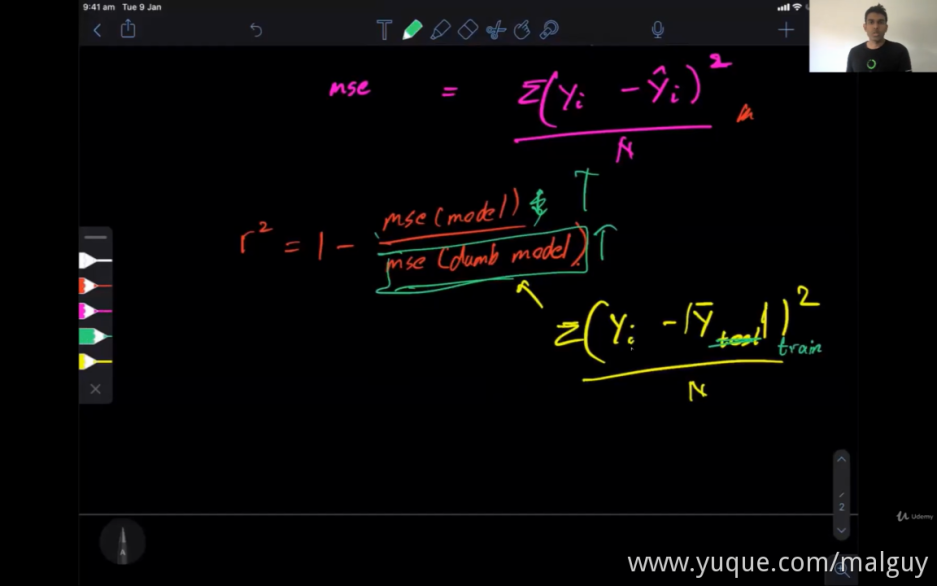 9:41 am Tue 9 Jan
T
mse = Σ(yi - ŷi)²
N
r² = 1 - mse (model)
mse (dumb model)
Σ(Yi - |Ȳtest|)²
train
N
2
A
Udemy
www.yuque.com/malguy